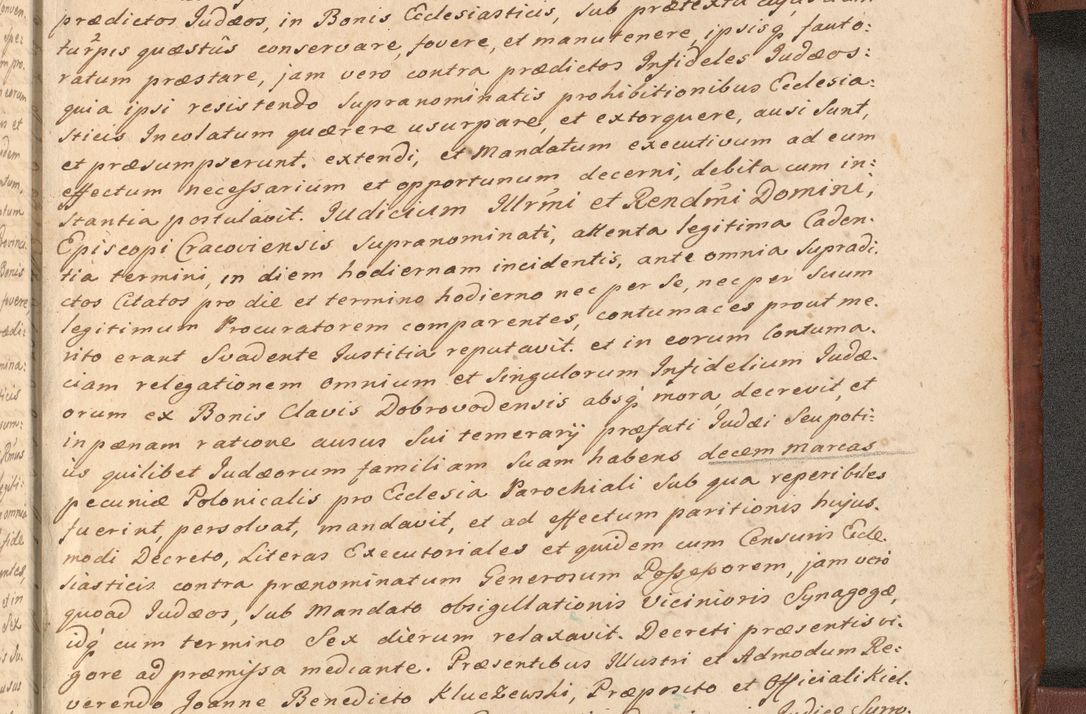 prædictos Judæos, in Bonis Ecclesiasticis, sub prætextu
turpis quæstûs conservare, fovere, et manutenere, ipsisq̃ fauto:
ratum præstare, jam vero contra prædictos Infideles Judæos:
quia ipsi resistendo supranominatis prohibitionibus Ecclesia:
sticis Incolatum quærere usurpare, et extorquere, ausi sunt,
et præsumpserunt. extendi, et Mandatum executivum ad eum
effectum necessarium et opportunum decerni, debita cum in:
stantia postulavit. Judicium Illrm̃i et Rendm̃i Domini,
Episcopi Cracoviensis supranominati, attenta legitima Caden:
tia termini, in diem hodiernam incidentis, ante omnia supradi:
ctos Citatos pro die et termino hodierno nec per se, nec per suum
legitimum Procuratorem comparentes, contumaces prout me:
rito erant Svadente Justitia reputavit. et in eorum Contuma:
ciam relegationem omnium et singulorum Infidelium Judæ:
orum ex Bonis Clavis Dobrovodensis absq̃ mora decrevit, et
in pænam ratione ausus sui temerarij præfati Judæi seu poti:
us quilibet Judæorum familiam suam habens decem marcas
pecuniæ Polonicalis pro Ecclesia Parochiali sub qua reperibiles
fuerint, persolvat, mandavit, et ad effectum paritionis hujus:
modi Decreto, Literas Executoriales et quidem cum Censuris Eccle:
siasticis contra prænominatum Generosum Possessorem, jam verò
quoad Judæos, sub Mandato obsigillationis vicinioris Synagogæ,
idq̃ cum termino Sex dierum relaxavit. Decreti præsentis vi:
gore ad præmissa mediante. Præsentibus Illustri et Admodum Re:
verendo Joanne Benedicto Kluczewski, Præposito et Officiali Kiel:
Judice Surro: